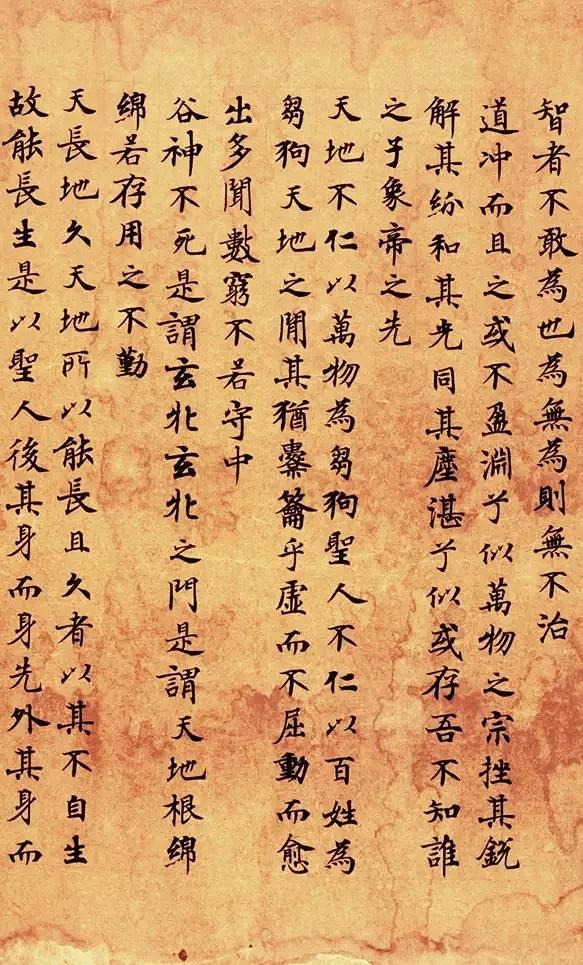 智者不敢為也為無為則無不治
道冲而且之或不盈淵兮似萬物之宗挫其銳
解其紛和其光同其塵湛兮似或存吾不知誰
之子象帝之先
天地不仁以萬物為芻狗聖人不仁以百姓為
芻狗天地之閒其猶橐籥乎虛而不屈動而愈
出多聞數窮不若守中
谷神不死是謂玄牝玄牝之門是謂天地根綿
綿若存用之不勤
天長地久天地所以能長且久者以其不自生
故能長生是以聖人後其身而身先外其身而